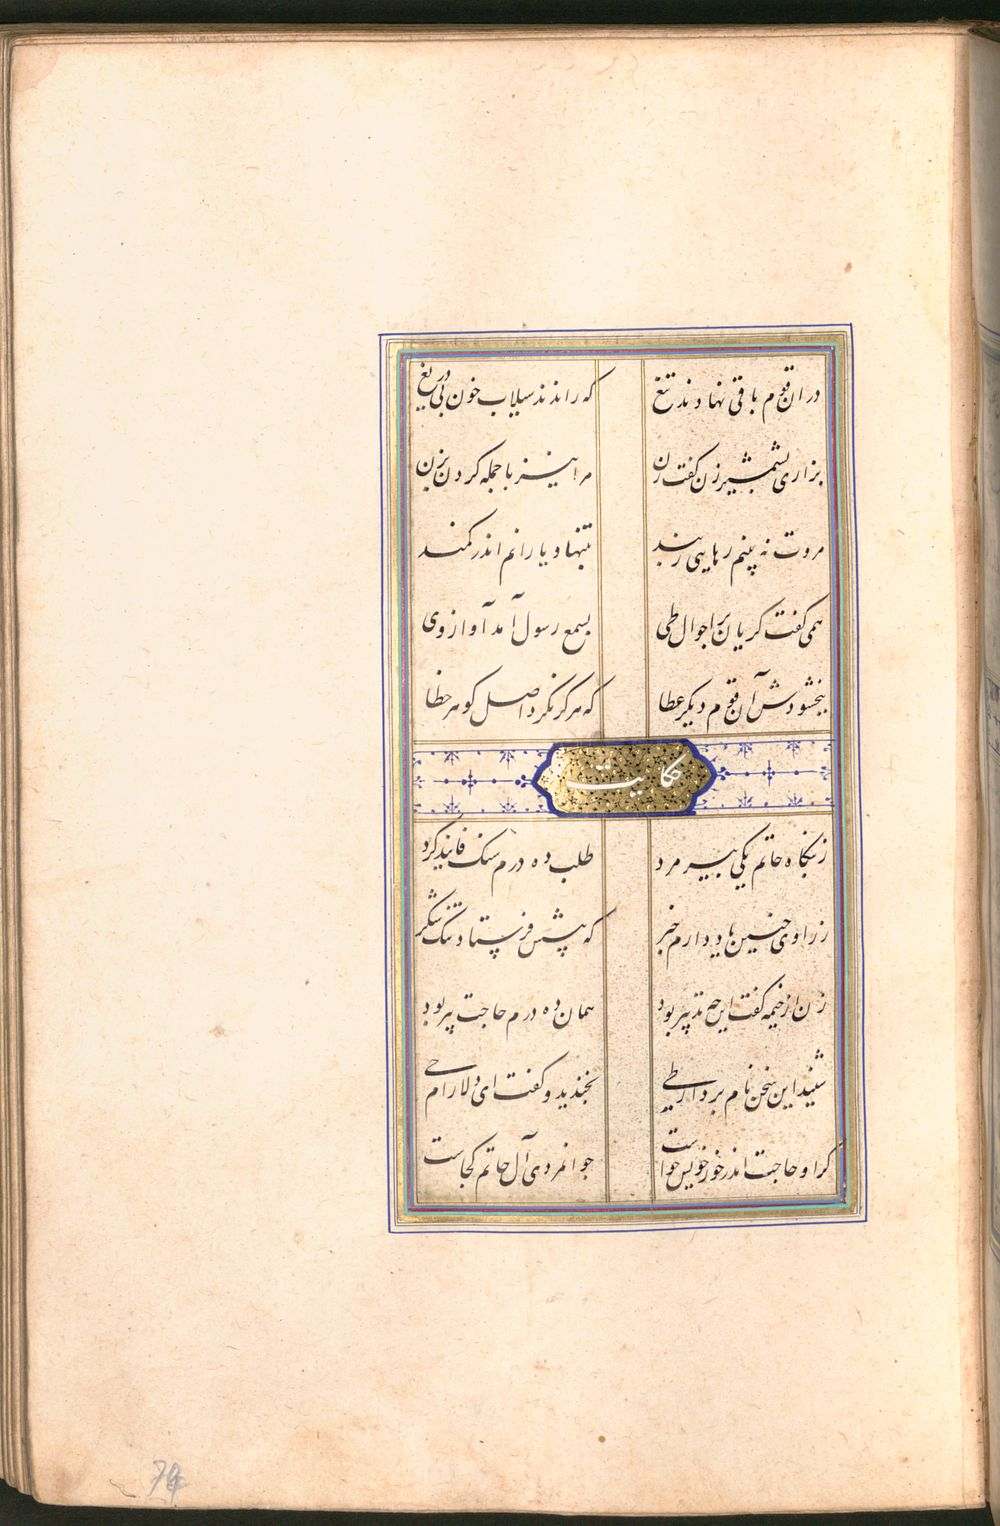 در ان قوم باقی نهادند تیغ
که رانند سیلاب خون بی دریغ
بزاری بشمشیر زن گفت زن
مرا نیز با جمله گردن بزن
مروت نه بینم رهایی ز بند
بتنها و یارانم اندر کمند
همی گفت گریان بر احوال طی
بسمع رسول آمد آواز وی
ببخشودش آن قوم دیگر عطا
که هرگز نکرد اصل گوهر خطا
حکایت
ز بنگاه حاتم یکی پیر مرد
طلب ده درم سنک فانید کرد
ز راوی چنین یاد دارم خبر
که پیشش فرستاد تنک شکر
زن از خیمه گفت این چه تدبیر بود
همان ده درم حاجت پیر بود
شنید این سخن نام بردار طی
بخندید و گفت ای دلارام حی
گر او حاجت اندر خور خویش خواست
جوانمردی آل حاتم کجاست
74